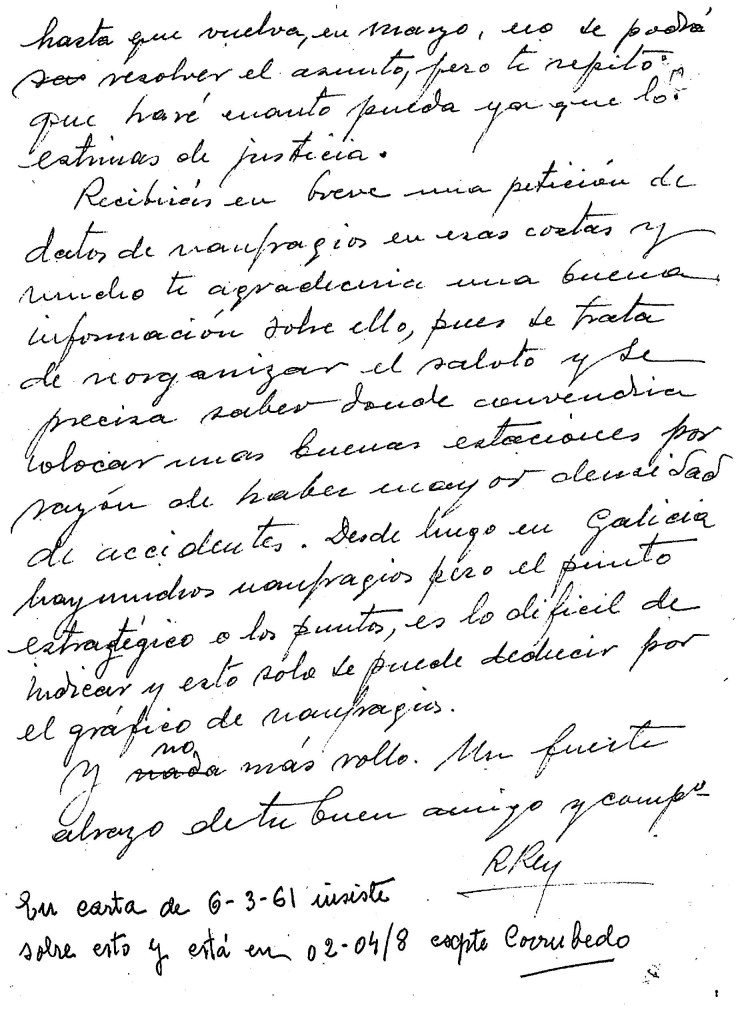 hasta que vuelva, en marzo, no se podrá
resolver el asunto, pero te repito
que haré cuanto pueda ya que lo
estimas de justicia.
Recibirás en breve una petición de
datos de naufragios en esas costas y
mucho te agradeceria una buena
información sobre ello, pues se trata
de reorganizar el saloto y se
precisa saber donde convendria
colocar unas buenas estaciones por
razón de haber mayor densidad
de accidentes. Desde luego en Galicia
hay muchos naufragios pero el punto
estratégico o los puntos, es lo dificil de
indicar y esto solo se puede deducir por
el gráfico de naufragios.
Y no nada más rollo. Un fuerte
abrazo de tu buen amigo y compº
R Rey
En carta de 6-3-61 insiste
sobre esto y está en 02-04/8 cscpte Corrubedo